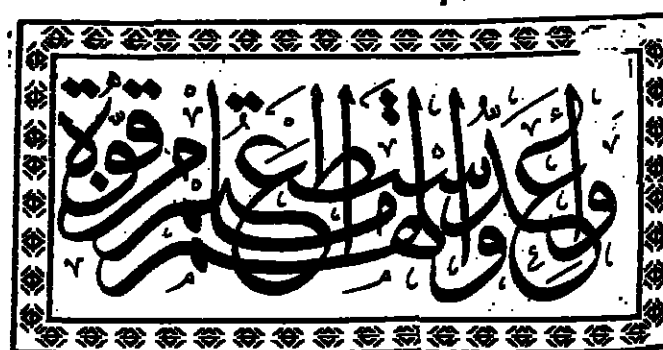 وَأَعِدُّوا لَهُمْ مَا اسْتَطَعْتُمْ مِنْ قُوَّةٍ